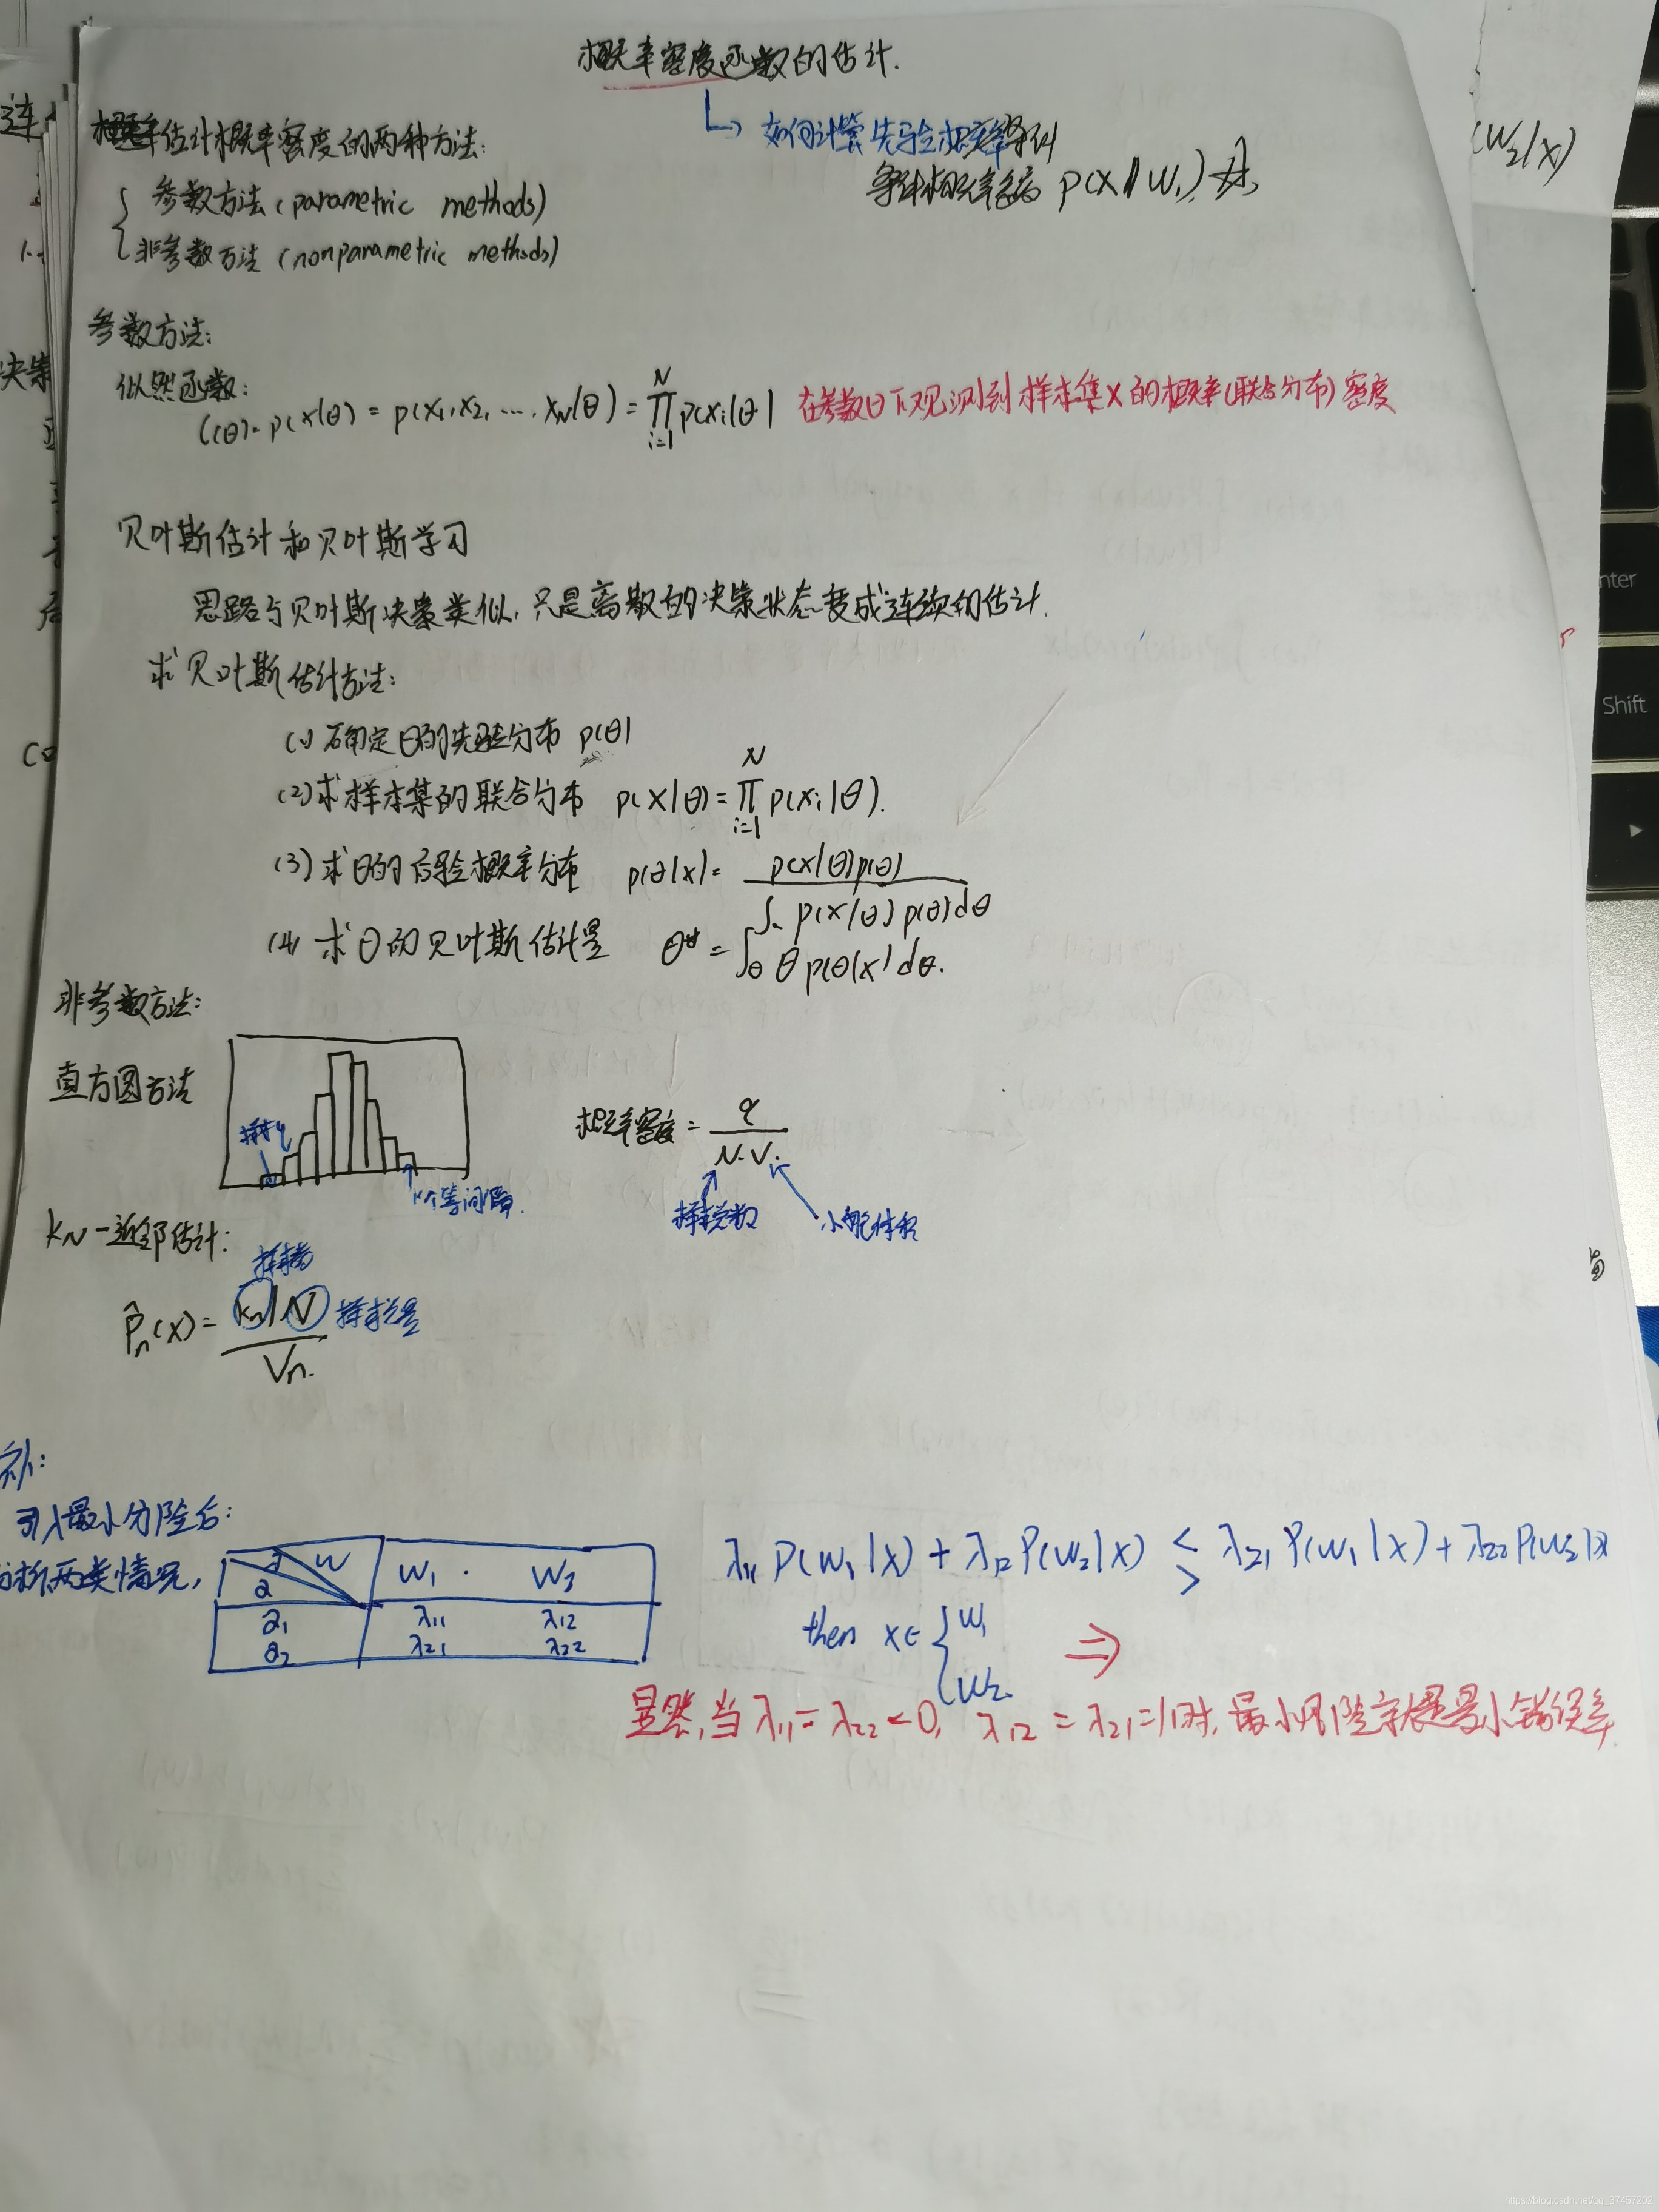 概率密度函数的估计.
估计概率密度的两种方法:
如何计算先验概率
p(x|w₁)
(W₂|x)
参数方法 (parametric methods)
非参数方法 (nonparametric methods)
参数方法:
似然函数:
l(θ)=p(x|θ) = p(x₁,x₂,…,x_N|θ) = ∏_{i=1}^{N} p(xᵢ|θ) 在参数θ下观测到样本集X的概率(联合分布)密度
贝叶斯估计和贝叶斯学习
思路与贝叶斯决策类似,只是离散的决策状态变成连续的估计.
求贝叶斯估计方法:
(1) 确定θ的先验分布 p(θ)
(2) 求样本集的联合分布 p(x|θ) = ∏_{i=1}^{N} p(xᵢ|θ).
(3) 求θ的后验概率分布 p(θ|x) = p(x|θ)p(θ) / ∫ p(x|θ)p(θ)dθ
(4) 求θ的贝叶斯估计量 θ* = ∫_θ θ p(θ|x) dθ.
非参数方法:
直方图方法
概率密度 = q / N·V.
样本q
k个等间隔.
样本总数
小舱体积
k_N-近邻估计:
样本数
p̂ₙ(x) = kₙ/N / Vₙ. 样本总量
补:
引入最小风险后:
分析两类情况,
a w W₁ W₂
a₁ λ₁₁ λ₁₂
a₂ λ₂₁ λ₂₂
λ₁₁ P(w₁|x) + λ₁₂ P(w₂|x) <> λ₂₁ P(w₁|x) + λ₂₂ P(w₂|x)
then x∈ { w₁ w₂. ⇒
显然,当 λ₁₁ = λ₂₂ = 0, λ₁₂ = λ₂₁ = 1 时,最小风险就是最小错误率.
nter
Shift
https://blog.csdn.net/qq_37457202